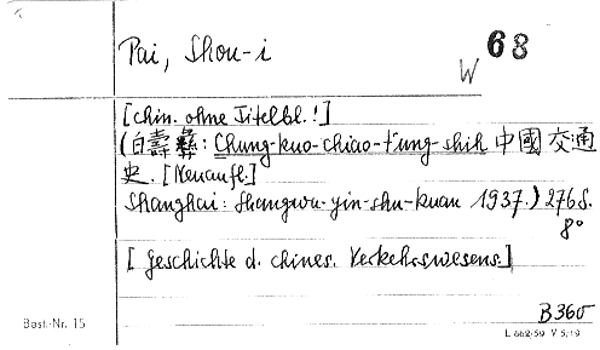 Pai, Shou-i
W 68
[chin. ohne Titelbl.!]
(白壽彝: Chung-kuo-chiao-t'ung-shih 中國交通
史. [Neuaufl.]
Shanghai: Shangwu-yin-shu-kuan 1937.) 276 S.
8°
[Geschichte d. chines. Verkehrswesens.]
B 360
Best.-Nr. 15
L 662/59 V 5/19